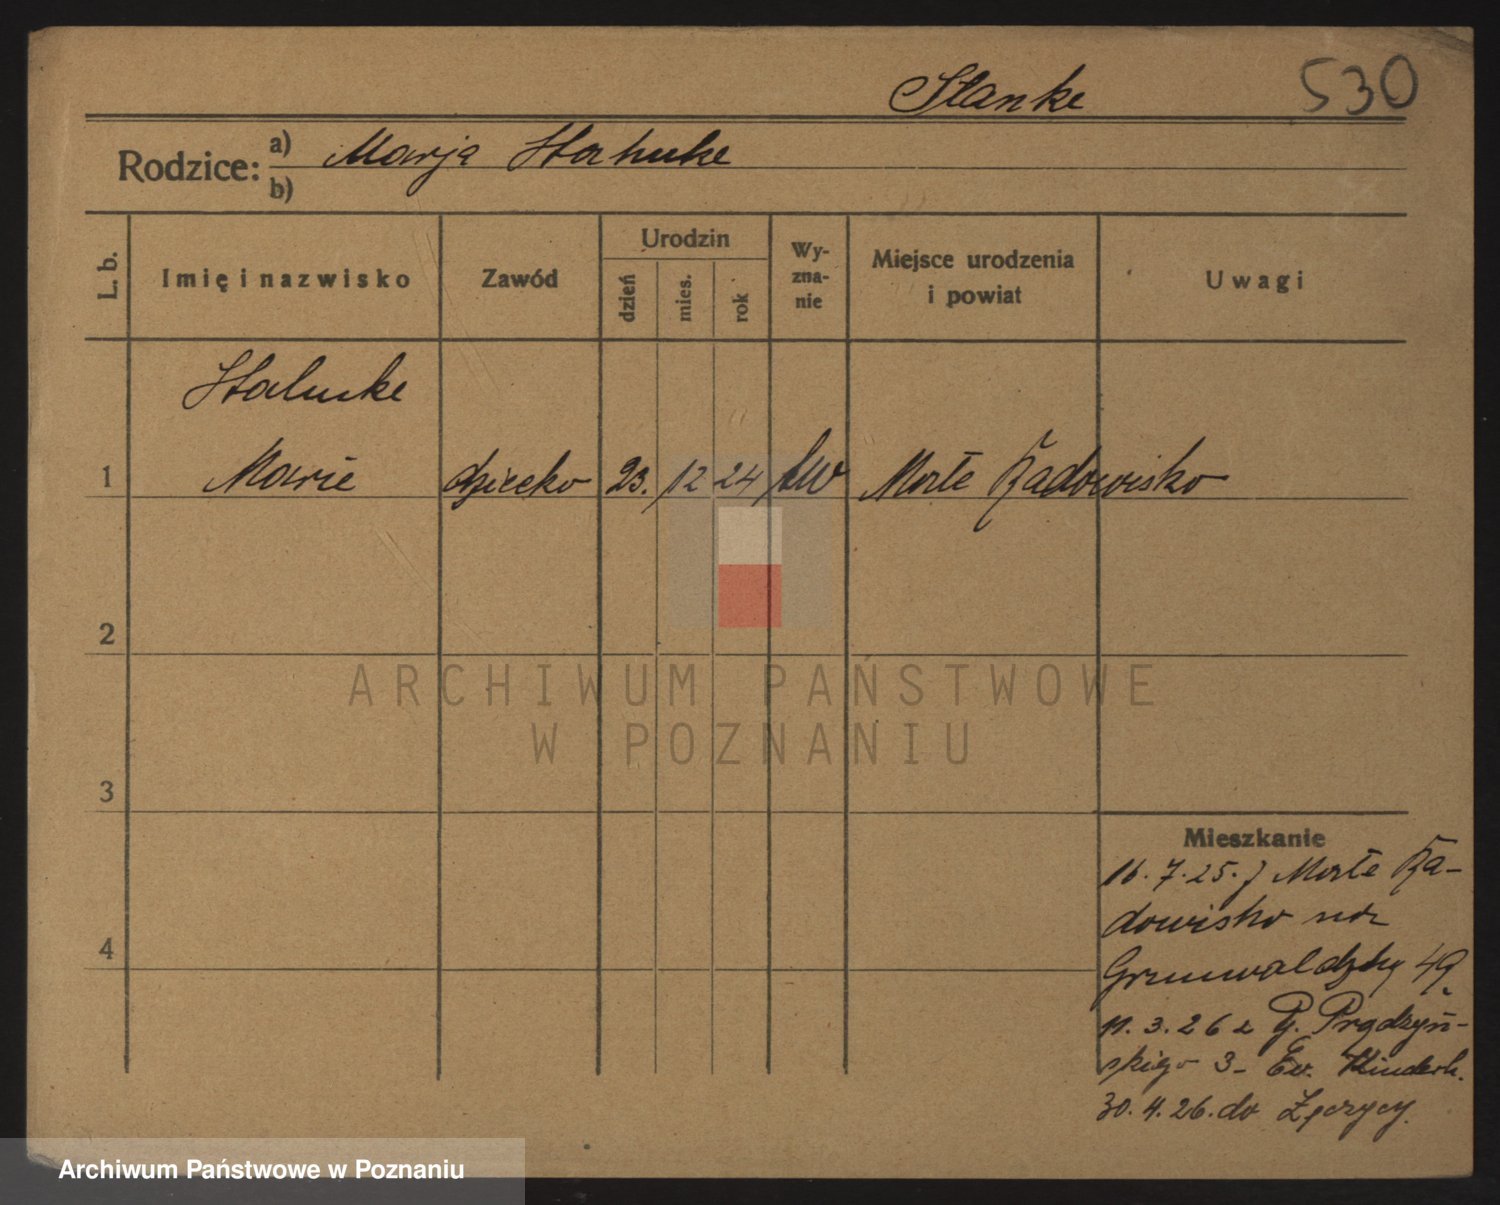 Stanke 530
Rodzice: a) Marja Stahnke
b)
L. b. Imię i nazwisko Zawód Urodzin dzień mies. rok Wyznanie Miejsce urodzenia i powiat Uwagi
Stahnke
1 Marie dziecko 23. 12 24 ew Małe Radowisko
2
3
4
Mieszkanie
16.7.25. z Małe Ra-
dowisko
Grunwaldzky 49
11.3.26 z Prądzyń-
skiego 3 - Ew. Kinderh.
30.4.26. do
ARCHIWUM PAŃSTWOWE
W POZNANIU
Archiwum Państwowe w Poznaniu